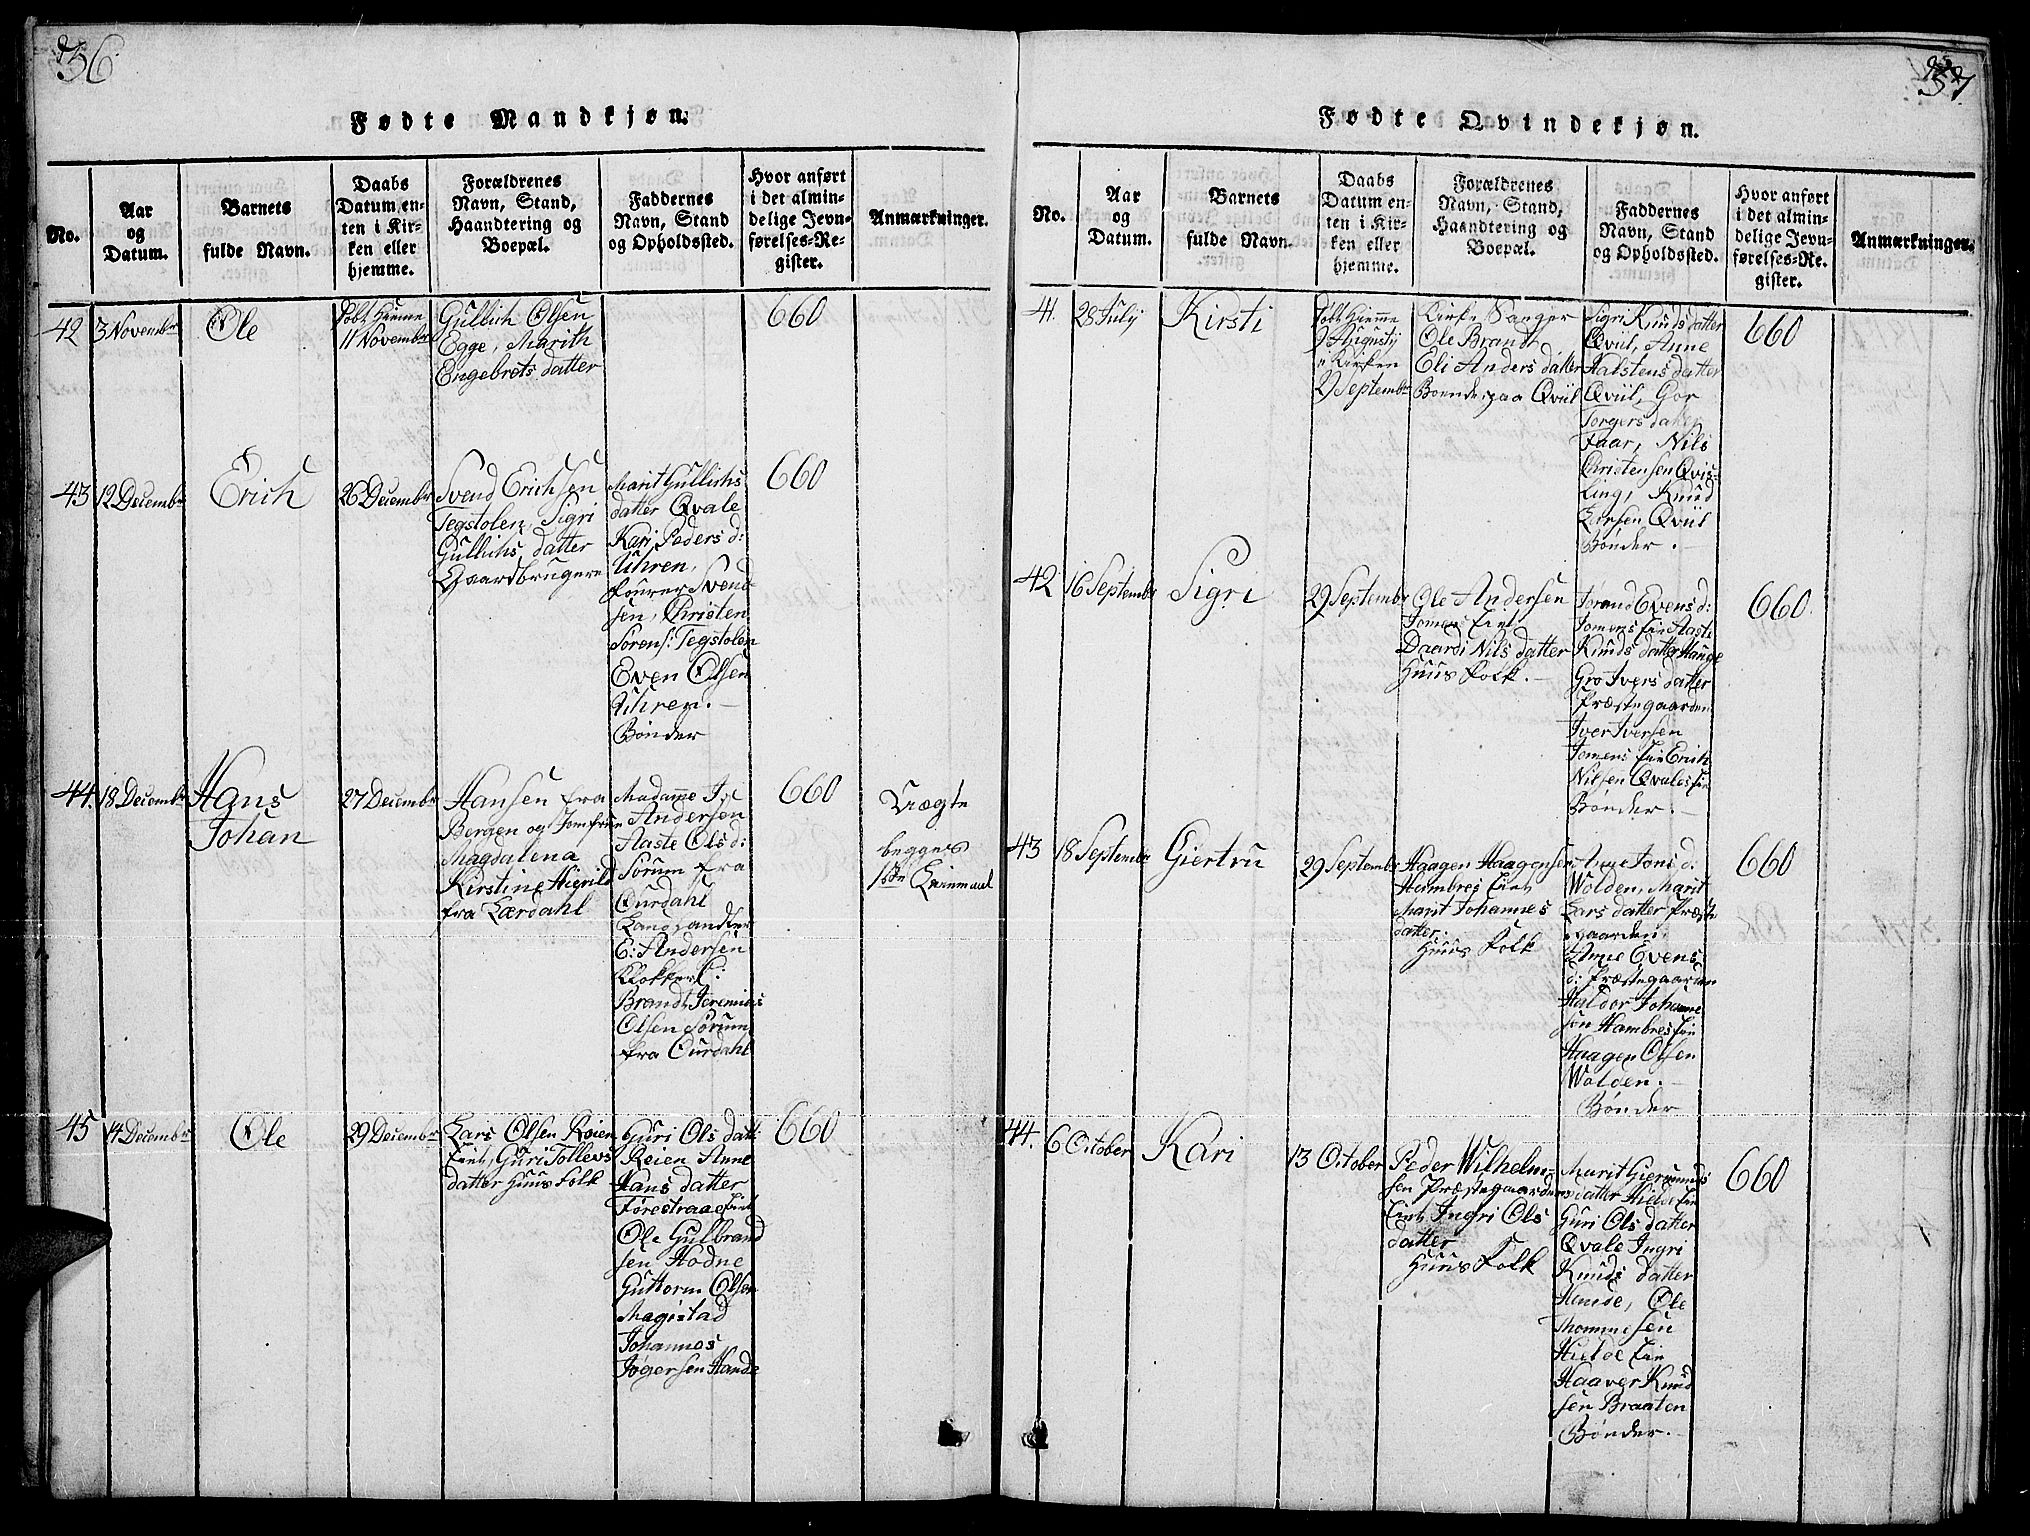 36.
Fødte Mandkjøn.
No.
Aar
og
Datum.
Barnets
fulde Navn.
Daabs
Datum en-
ten i Kir-
ken eller
hjemme.
Forældrenes
Navn, Stand,
Haandtering og
Boepæl.
Faddernes
Navn, Stand
og Opholdssted.
Hvor anført
i det almin-
delige Jevn-
førelses-Re-
gister.
Anmærkninger.
42
3 Novembr
Ole
Døbt Hiemme
11 Novembr
Gullich Olsen
Egge, Marith
Engebrets datter
660
43
12 Decembr
Erich
26 Decembr
Svend Erichsen
Tegstolen, Sigri
Gullichs datter
Gaardbrugere
Marit Gullichs
datter Qvale
Kari Peders d:
Uhren,
Fourer Svend
sen, Christen
Sörens: Tegstolen
Even Olsen
Uhren.
Bönder
660
44.
18 Decembr
Hans
Johan
27 Decembr
Hansen fra
Bergen og Jomfrue
Magdalena
Kirstine
fra Lærdahl
Madame
Andersen
Aaste Ols d:
Sörum fra
Ourdahl
E: Andersen
Klokker
Brandt, Jeremias
Olsen Sörum
fra Ourdahl
660
Uægte
begges
1ste Leiermaal
45
14 Decembr
Ole
29 Decembr
Lars Olsen Reien
Eiet, Guri Tollevs
datter Huus Folk
Guri Ols datt:
Reien Anne
Hans datter
Førestraae Eiet
Ole Gulbrand
sen Hodne
Guttorm Olsen
Magistad
Johannes
Jögersen Hande
660
37
Fødte Qvindekjøn.
No.
Aar
og
Datum.
Barnets
fulde Navn.
Daabs
Datum en-
ten i Kir-
ken eller
hjemme.
Forældrenes
Navn, Stand,
Haandtering og
Boepæl.
Faddernes
Navn, Stand
og Opholdssted.
Hvor anført
i det almin-
delige Jevn-
førelses-Re-
gister.
Anmærkninger.
41.
28 July
Kirsti
Døbt Hiemme
Augustj
i Kirken
29 Septembr
Kirke Sanger
Ole Brandt,
Eli Anders datter
Boende paa Qviil
Sigri Knuds datter
Qviil, Anne
Halstens datter
Qviil, Gor
Torgers datter
Faar, Nils
Christensen Qvis-
ling, Knud
Larsen Qviil
Bönder.
660
42
16 Septembr
Sigri
29 Septembr
Ole Andersen
Jomens Eiet
Daardi Nils datter
Huus Folk.
Jorand Evens d:
Jomens Eie Aaste
Knuds datter Hauge
Gro Ivers datter
Præstegaarden
Iver Iversen
Jomens Eie Erich
Nilsen Qvales Eie
Bönder.
660.
43
18 Septembr
Giertru
29 Septembr
Haagen Haagensen
Hermbres Eiet
Marit Johannes
datter.
Huus Folk
Anne Jons d:
Wolden, Marit
Lars datter Præste
gaarden.
Anne Evens
d: Præstegaarden
Haldor Johanne
sön Hambres Eie
Haagen Olsen
Wolden.
Bönder
660
44.
6 October
Kari
13 October
Peder Wilhelm-
sen Præstegaardens
Eiet Ingri Ols
datter
Huus Folk
Marit Giermunds
datter Hielde Eie
Guri Ols datter
Qvale Ingri
Knuds datter
Hande, Ole
Thommesen
Hielde Eie
Haaver Knud
sen Braaten
Bönder.
660